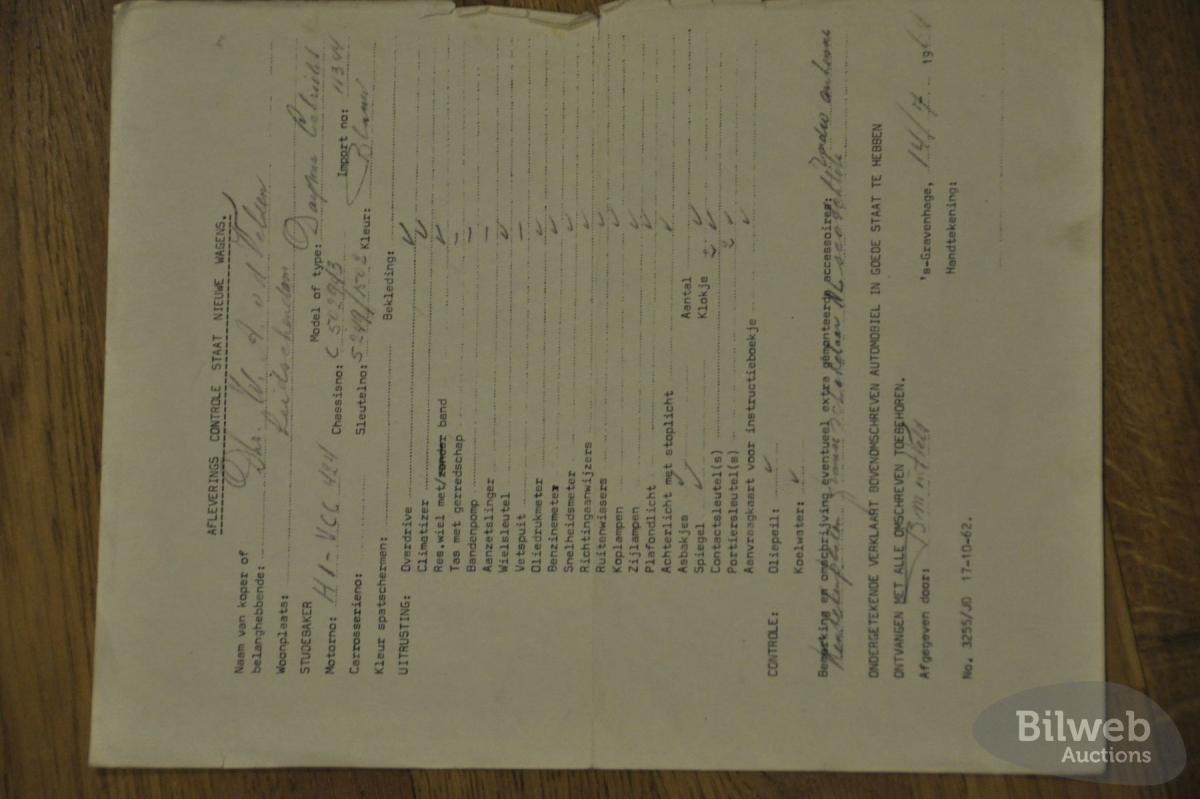 AFLEVERINGS CONTROLE STAAT NIEUWE WAGENS.
Naam van koper of
belanghebbende: Dhr. W.
Woonplaats: Leidschendam
STUDEBAKER Model of type: Daytona
Motorno: H1-VCC 424 Chassisno: C 5029/3 Import no: 11344
Carrosserieno: Sleutelno: Kleur: Blauw
Kleur spatschermen: Bekleding:
UITRUSTING: Overdrive ✓
Climatizer ✓
Res.wiel met/zonder band ✓
Tas met gerredschap –
Bandenpomp –
Aanzetslinger –
Wielsleutel ✓
Vetspuit –
Oliedrukmeter ✓
Benzinemeter ✓
Snelheidsmeter ✓
Richtingaanwijzers ✓
Ruitenwissers ✓
Koplampen ✓
Zijlampen ✓
Plafondlicht ✓
Achterlicht met stoplicht ✓
Asbakjes ✓ Aantal
Spiegel ✓ Klokje ✓
Contactsleutel(s) ✓
Portiersleutel(s) 2 ✓
Aanvraagkaart voor instructieboekje ✓
CONTROLE: Oliepeil: ✓
Koelwater: ✓
Bemerking en omschrijving eventueel extra gemonteerde accessoires:
ONDERGETEKENDE VERKLAART BOVENOMSCHREVEN AUTOMOBIEL IN GOEDE STAAT TE HEBBEN
ONTVANGEN MET ALLE OMSCHREVEN TOEBEHOREN.
Afgegeven door: 's-Gravenhage, 14/7 196
Handtekening:
No. 3255/JD 17-10-62.
Bilweb
Auctions